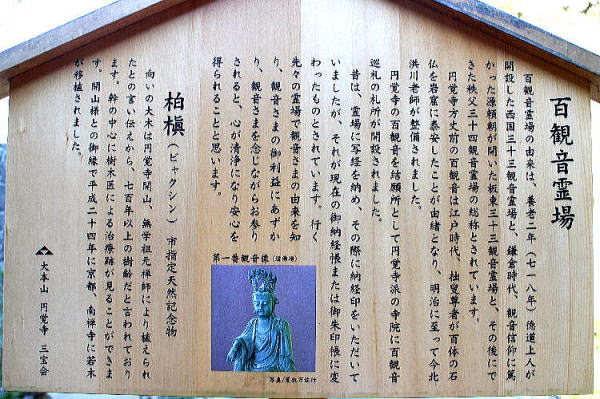 百観音霊場
百観音霊場の由来は、養老二年（七一八年）徳道上人が
開設した西国三十三観音霊場と、鎌倉時代、観音信仰に篤
かった源頼朝が開いた坂東三十三観音霊場と、その後にで
きた秩父三十四観音霊場の総称とされています。
円覚寺方丈前の百観音は江戸時代、拙叟尊者が百体の石
仏を岩窟に泰安したことが由緒となり、明治に至って今北
洪川老師が整備されました。
円覚寺の百観音を結願所として円覚寺派の寺院に百観音
巡礼の札所が開設されました。
昔は、霊場に写経を納め、その際に納経印をいただいて
いましたが、それが現在の御納経帳または御朱印帳に変
わったものとされています。行く
先々の霊場で観音さまの由来を知
り、観音さまの御利益にあずか
り、観音さまを念じながらお参り
されると、心が清浄になり安心を
得られることと思います。
第一番観音像
写真/
柏槇（ビャクシン）市指定天然記念物
向いの大木は円覚寺開山、無学祖元禅師により植えられ
たとの言い伝えから、七百年以上の樹齢だと言われており
ます。幹の中心に樹木医による治療跡が見ることができま
す。開山様との御縁で平成二十四年に京都、南禅寺に若木
が移植されました。
大本山 円覚寺 三宝会